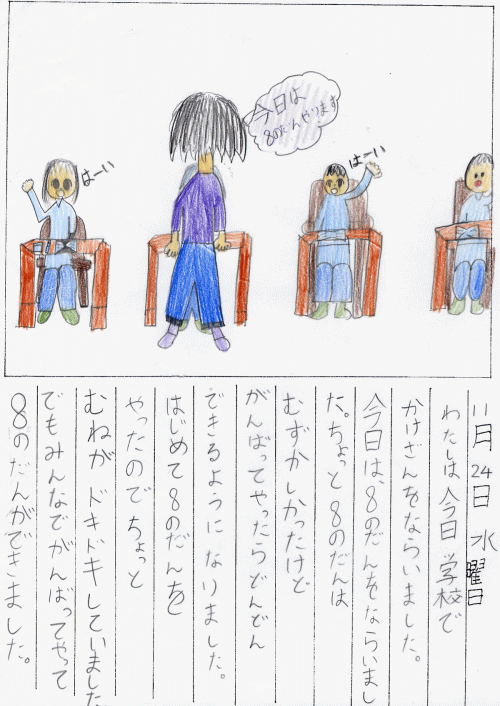 今日は
8のだんやります
はーい
はーい
11月24日 水曜日
わたしは今日 学校で
かけざんをならいました。
今日は、8のだんをならいまし
た。ちょっと8のだんは
むずかしかったけど
がんばってやったらどんどん
できるようになりました。
はじめて8のだんを
やったので ちょっと
むねが ドキドキしていました。
でもみんなでがんばってやって
8のだんができました。